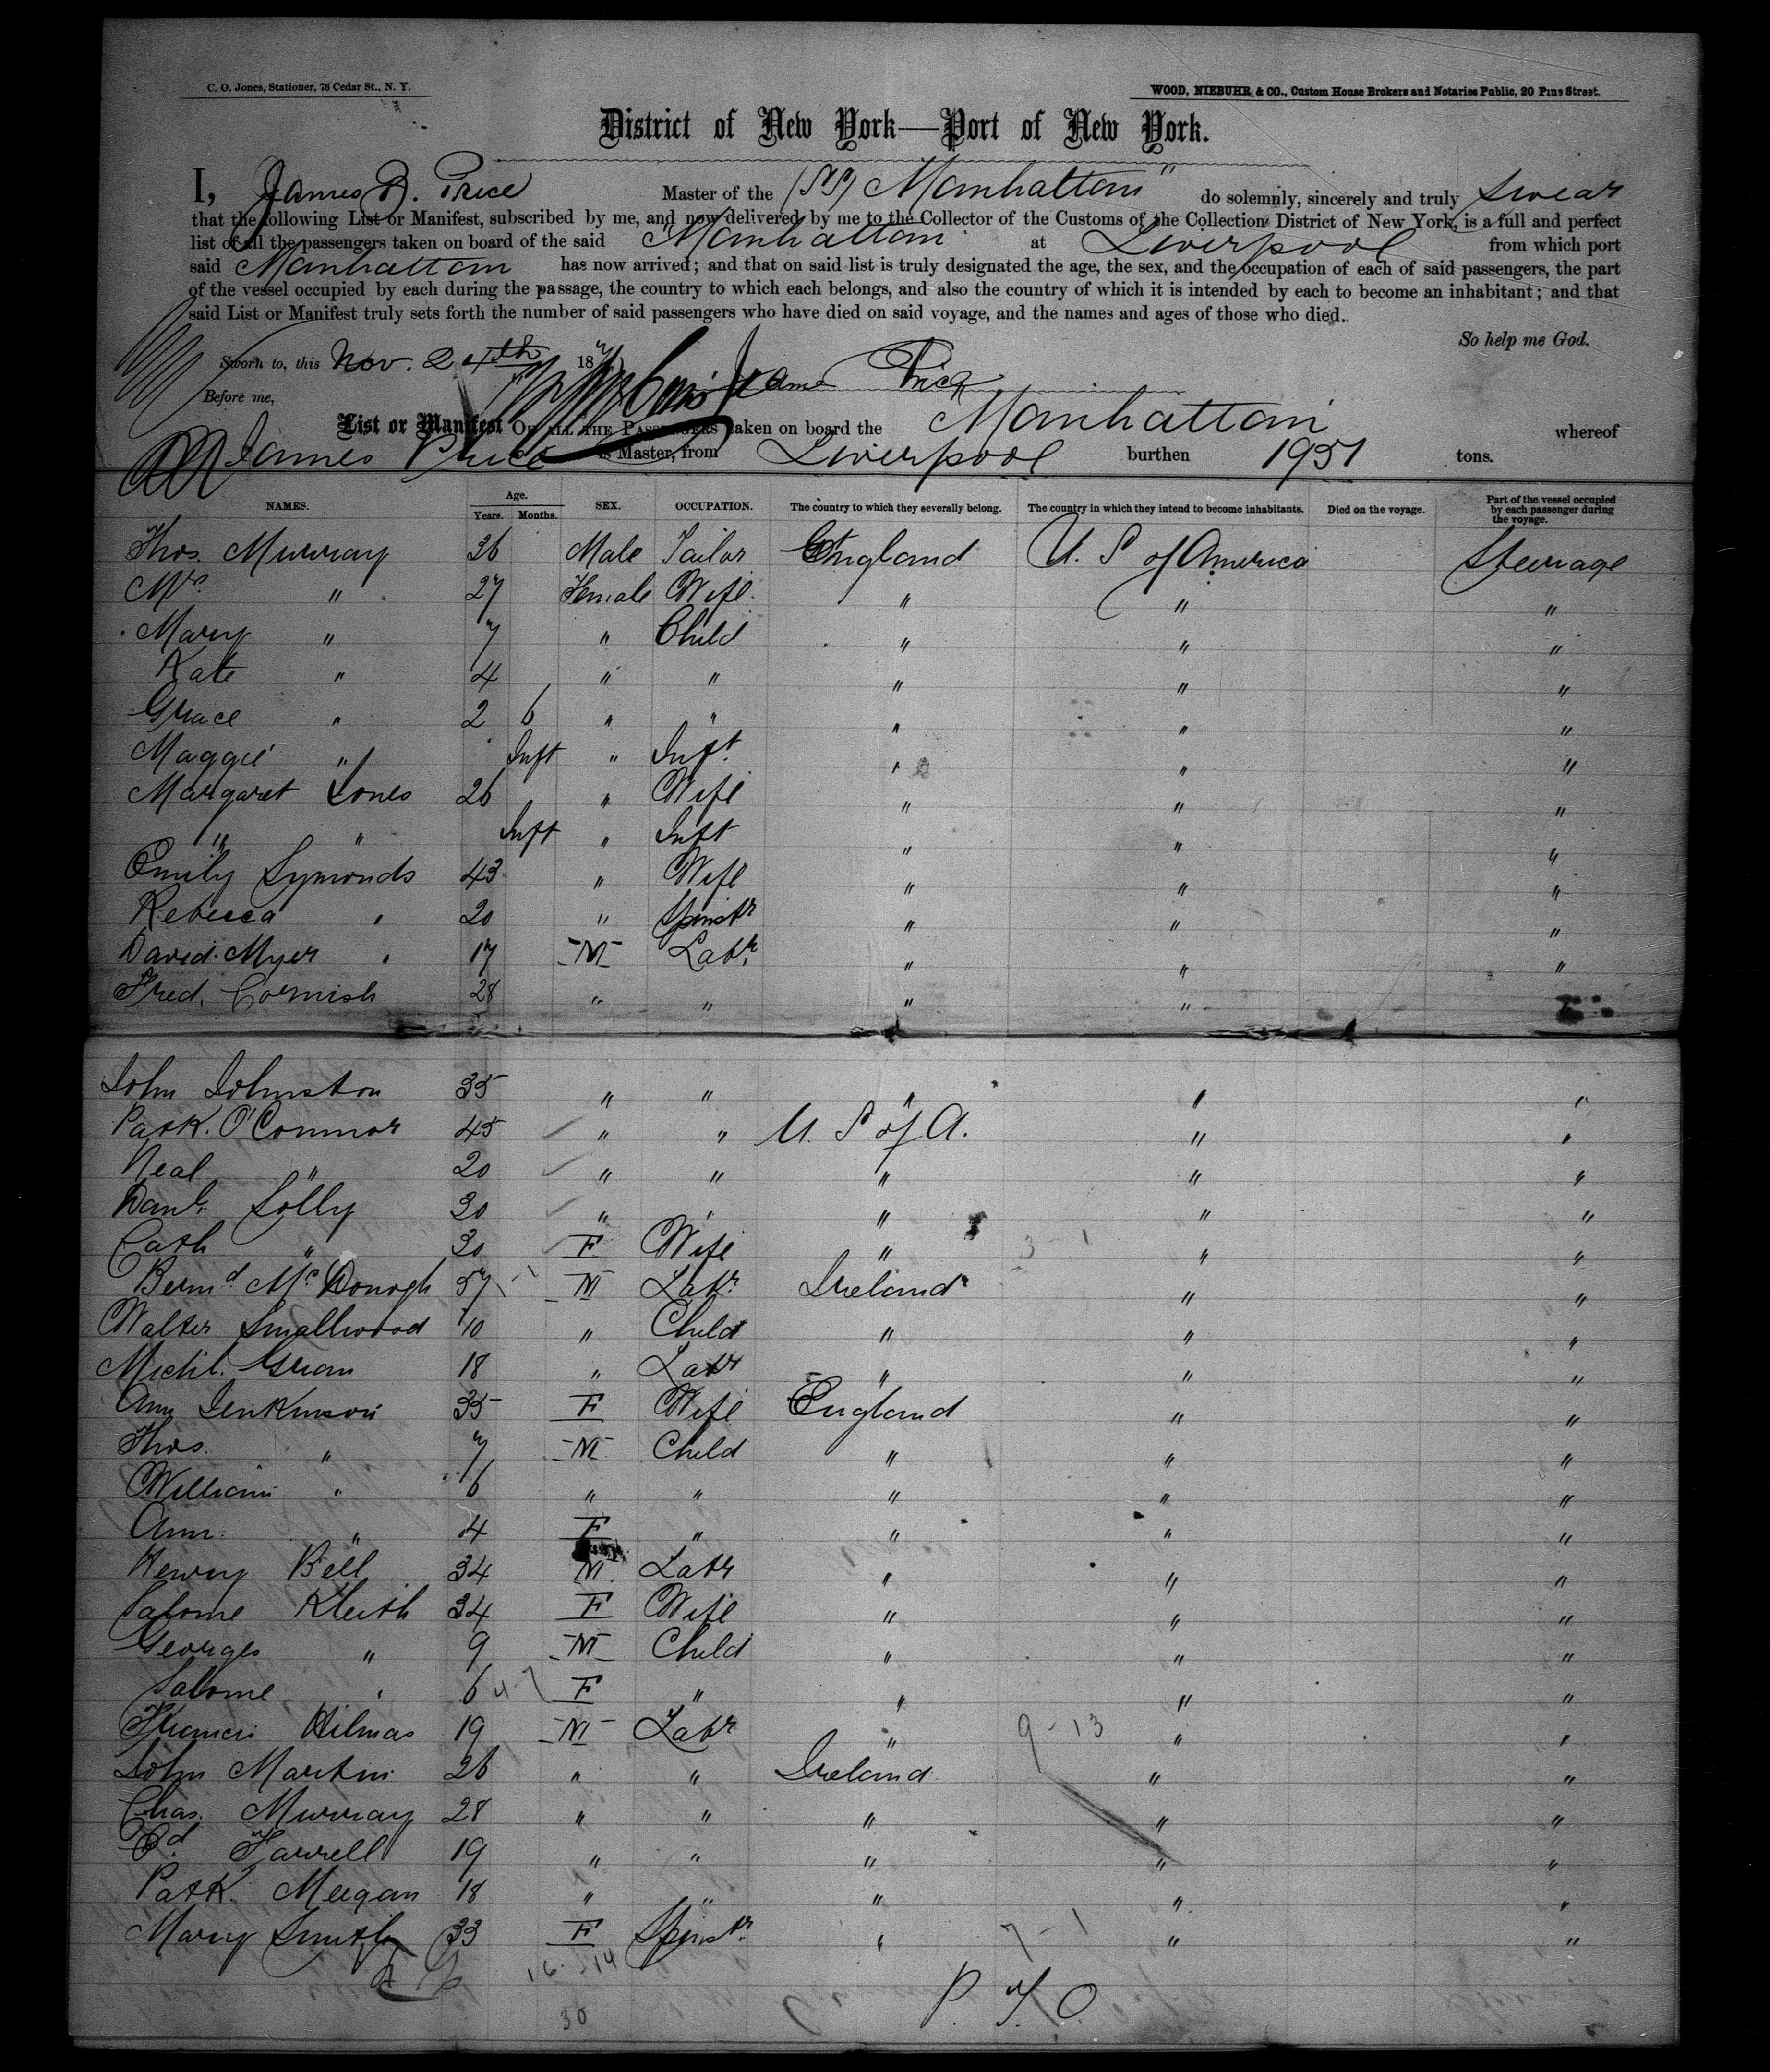 C. O. Jones, Stationer, 76 Cedar St., N. Y.
WOOD, NIEBUHR & CO., Custom House Brokers and Notaries Public, 20 Pine Street.
District of New York—Port of New York.
I, James B. Price Master of the (SS) Manhattan" do solemnly, sincerely and truly swear
that the following List or Manifest, subscribed by me, and now delivered by me to the Collector of the Customs of the Collection District of New York, is a full and perfect
list of all the passengers taken on board of the said Manhattan at Liverpool from which port
said Manhattan has now arrived; and that on said list is truly designated the age, the sex, and the occupation of each of said passengers, the part
of the vessel occupied by each during the passage, the country to which each belongs, and also the country of which it is intended by each to become an inhabitant; and that
said List or Manifest truly sets forth the number of said passengers who have died on said voyage, and the names and ages of those who died.
So help me God.
Sworn to, this Nov. 24th 187 James Price
Before me,
List or Manifest OF ALL THE PASSENGERS taken on board the Manhattan whereof
James Price is Master, from Liverpool burthen 1951 tons.
NAMES. Age. Years. Months. SEX. OCCUPATION. The country to which they severally belong. The country in which they intend to become inhabitants. Died on the voyage. Part of the vessel occupied by each passenger during the voyage.
Thos. Murray 36 Male Tailor England U. S of America Steerage
Mrs. " 27 Female Wife " " "
Mary " 7 " Child " " "
Kate " 4 " " " " "
Grace " 2 6 " " " " "
Maggie " Inft " Inft. " " "
Margaret Jones 26 " Wife " " "
" " Inft " Inft " " "
Emily Symonds 43 " Wife " " "
Rebecca " 20 " Spinstr " " "
David Myer " 17 M Labr. " " "
Fred. Cornish 28 " " " "
John Johnston 35 " " " " "
Patk. O'Connor 45 " " U. S of A. " "
Neal " 20 " " " " "
Danl. Lolly 30 " " " " "
Cath " 30 F Wife " 3 - 1 " "
Bernd. McDonogh 57 M Labr. Ireland " "
Walter Smallwood 10 " Child " " "
Michl. 18 " Labr " " "
Ann Jenkinson 35 F Wife England " "
Thos. " 7 M Child " " "
William " 6 " " " " "
Ann " 4 F " " " "
Henry Bell 34 M Labr " " "
Salome Kleith 34 F Wife " " "
Georges " 9 M Child " " "
Salome " 6 F " " " "
Francis Hilmas 19 M Labr " 9 - 13 " "
John Martin 26 " " Ireland " "
Chas. Murray 28 " " " " "
Ed. Farrell 19 " " " " "
Patk. Meegan 18 " " " " "
Mary Smith 33 F Spinstr. " 7 - 1 " "
16 - 14
P. T. O
30